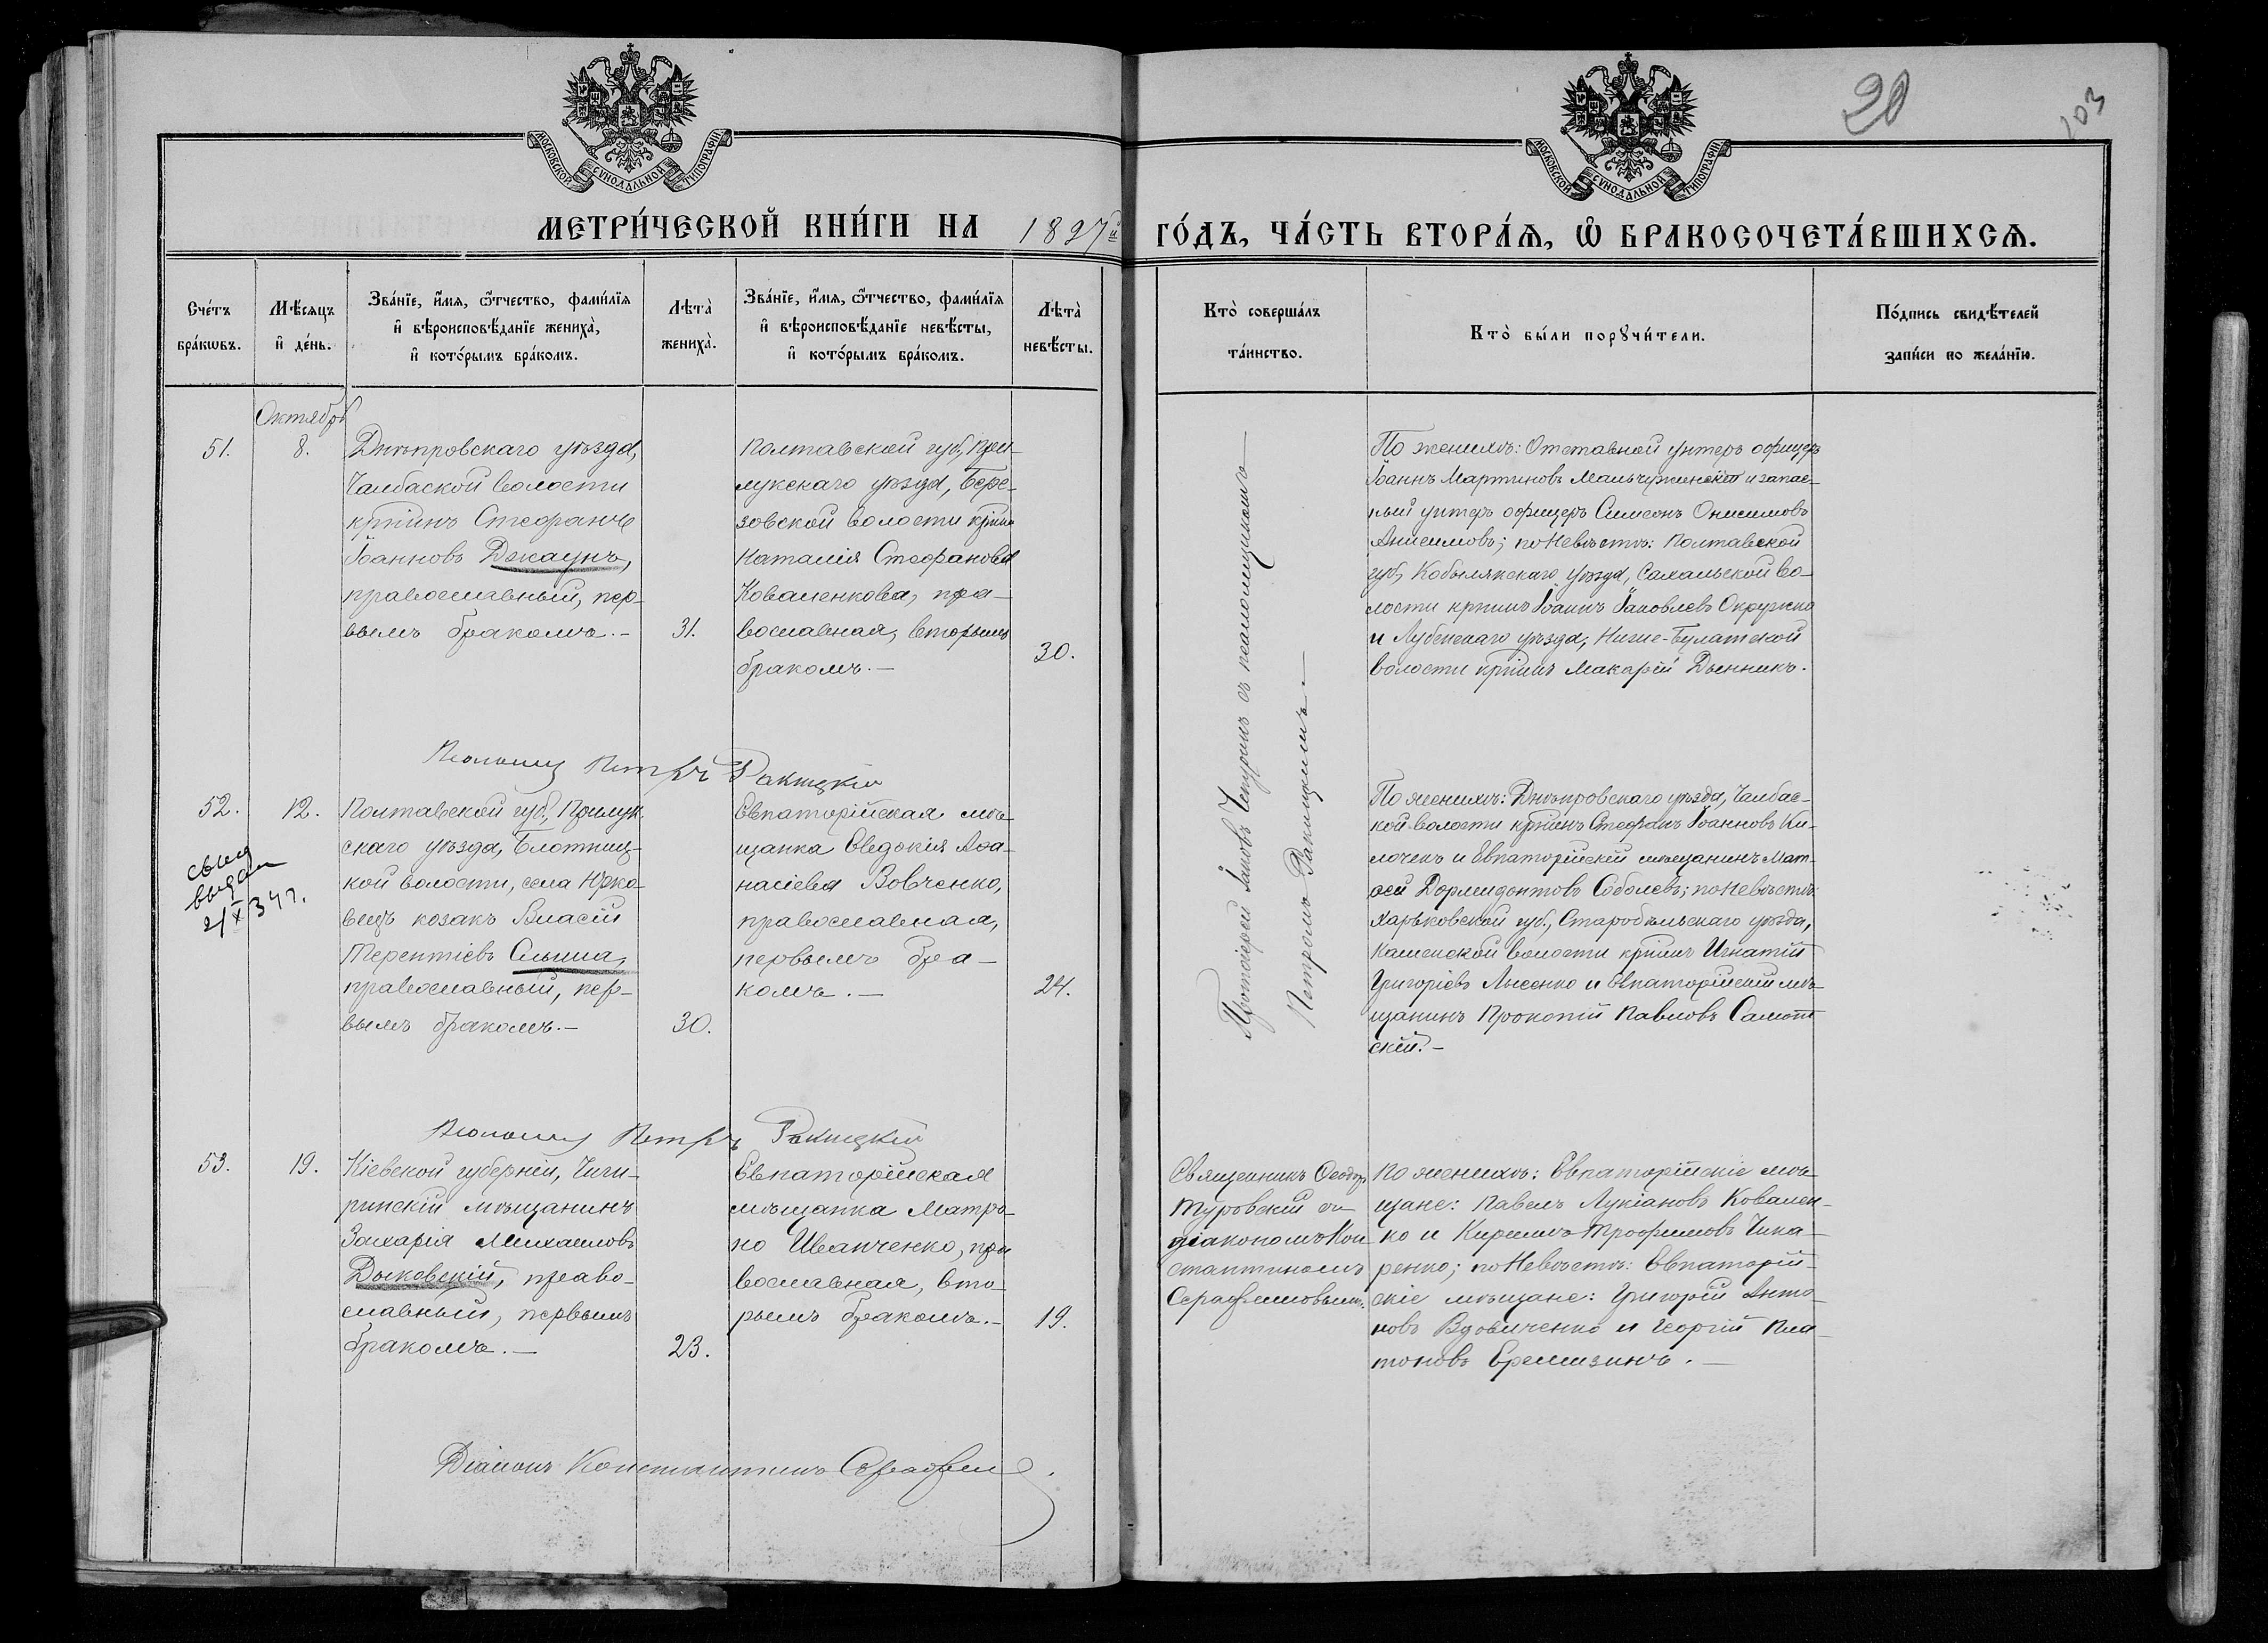 20
103
МОСКОВСКОЙ СѴНОДАЛЬНОЙ ТИПОГРАФІИ
МОСКОВСКОЙ СѴНОДАЛЬНОЙ ТИПОГРАФІИ
МЕТРИ́ЧЕСКОЙ КНИ́ГИ НА 1897й ГО́ДЪ, ЧА́СТЬ ВТОРА́Ѧ, Ѽ БРАКОСОЧЕТА́ВШИХСѦ.
Сче́тъ
бра́кѡвъ.
Мѣ́сяцъ
и҆ де́нь.
Зва́нїе, и҆́мѧ, ѻ҆́тчество, фами́лїѧ
и҆ вѣроисповѣ́данїе жениха̀,
и҆ кото́рымъ бра́комъ.
Лѣта̀
жениха̀.
Зва́нїе, и҆́мѧ, ѻ҆́тчество, фами́лїѧ
и҆ вѣроисповѣ́данїе невѣ́сты,
и҆ кото́рымъ бра́комъ.
Лѣта̀
невѣ́сты.
Кто̀ соверша́лъ
та́инство.
Кто̀ бы́ли порꙋчи́тели.
По́дпись свидѣ́телей
за́писи по жела́нїю.
Октябрь
51.
8.
Днѣпровскаго уѣзда,
Чалбаской волости
крнинъ Стефанъ
Іоанновъ Джаунъ,
православный, пер-
вымъ бракомъ.-
31.
Полтавской губ., При-
лукскаго уѣзда, Бере-
зовской волости
Наталія Стефанова
Коваленкова, пра-
вославная, вторымъ
бракомъ.-
30.
Протоіерей Іаковъ Чепуринъ съ псаломщикомъ
Петромъ Ракицкимъ.-
По женихѣ: Отставной унтеръ офицеръ
Іоаннъ Мартиновъ и запас-
ный унтеръ офицеръ Симеонъ Онисимовъ
Анисимовъ; по невѣстѣ: Полтавской
губ., Кобылякскаго уѣзда, Сахальской во-
лости крнинъ Іоаннъ Іаковлевъ Окружко
и Лубенскаго уѣзда, Ниже-Булатской
волости крнинъ Макарій Дынникъ.
Псаломщ Петръ Ракицкій
52.
12.
выдан
2/X 34 г.
Полтавской губ., Прилук-
скаго уѣзда, Блотниц-
кой волости, села Юрко-
вецъ козакъ Власій
Терентіевъ Слыша,
православный, пер-
вымъ бракомъ.-
30.
Евпаторійская мѣ-
щанка Евдокія Аѳа-
насіева Вовченко,
православная,
первымъ бра-
комъ.-
24.
По женихѣ: Днѣпровскаго уѣзда, Чалбас-
кой волости крнинъ Стефанъ Іоанновъ Ки-
лочекъ и Евпаторійскій мѣщанинъ Мат-
ѳей Дормидонтовъ Соболевъ; по невѣстѣ:
Харьковской губ., Старобѣльскаго уѣзда,
Каменской волости крнинъ Игнатій
Григоріевъ Лысенко и Евпаторійскій мѣ-
щанинъ Прокопій Павловъ Самойт
скій.-
Псаломщ Петръ Ракицкій
53.
19.
Кіевской губерніи, Чиги-
ринскій мѣщанинъ
Захарія Михаиловъ
Дыковскій, право-
славный, первымъ
бракомъ.-
23.
Евпаторійская
мѣщанка Матро-
на Иванченко, пра
вославная, вто-
рымъ бракомъ.-
19.
Священникъ Ѳеодоръ
Туровскій съ
діакономъ Кон
стантиномъ
Серафимовымъ.
По женихѣ: Евпаторійскіе мѣ-
щане: Павелъ Лукіановъ Ковален-
ко и Кириллъ Трофимовъ Чика-
ренко; по невѣстѣ: Евпаторій-
скіе мѣщане: Григорій Анто-
новъ Вдовиченко и Георгій Пла-
тоновъ Еремизинъ.-
Діаконъ Константинъ Серафим